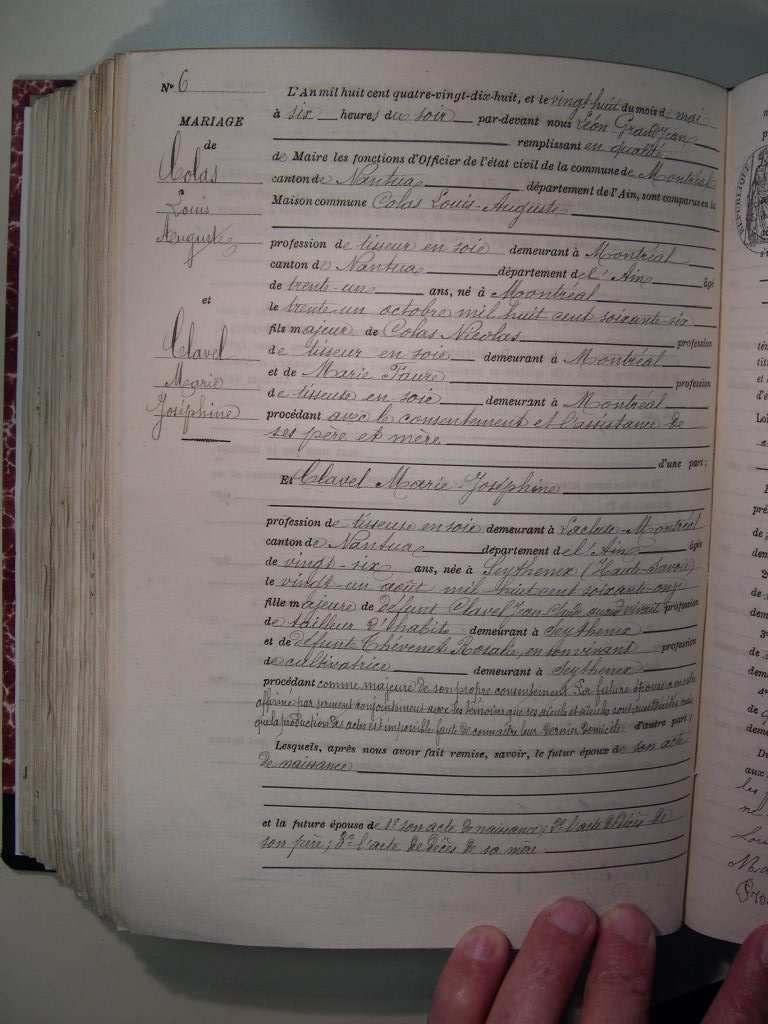 N° 6
MARIAGE
de
Colas
Louis
Auguste
et
Clavel
Marie
Joséphine
L'An mil huit cent quatre-vingt-dix-huit, et le vingt huit du mois de mai
à six heures du soir par-devant nous Léon Grandjean
remplissant en qualité
de Maire les fonctions d'Officier de l'état civil de la commune de Montréal
canton de Nantua département de l'Ain, sont comparus en la
Maison commune Colas Louis-Auguste
profession de tisseur en soie demeurant à Montréal
canton de Nantua département de l'Ain âgé
de trente-un ans, né à Montréal
le trente un octobre mil huit cent soixante six
fils majeur de Colas Nicolas profession
de tisseur en soie demeurant à Montréal
et de Marie Faure profession
de tisseuse en soie demeurant à Montréal
procédant avec le consentement et l'assistance de
ses père et mère
d'une part ;
Et Clavel Marie-Joséphine
profession de tisseuse en soie demeurant à Lacluse-Montréal
canton de Nantua département de l'Ain âgée
de vingt-six ans, née à Seythenex (Haute-Savoie)
le vingt un août mil huit cent soixante onze
fille majeure de défunt Clavel Jean vivait profession
de tailleur d'habits demeurant à Seythenex
et de défunte Thévenet Rosalie, en son vivant profession
de cultivatrice demeurant à Seythenex
procédant comme majeure de son propre consentement La future épouse a
affirmé par serment conjointement avec les témoins que ses aïeuls et aïeules sont mais
que la production des actes est impossible faute de connaître leur dernier domicile d'autre part ;
Lesquels, après nous avoir fait remise, savoir, le futur époux de son acte
de naissance
et la future épouse de 1° son acte de naissance ; 2° l'acte de décès de
son père ; 3° l'acte de décès de sa mère